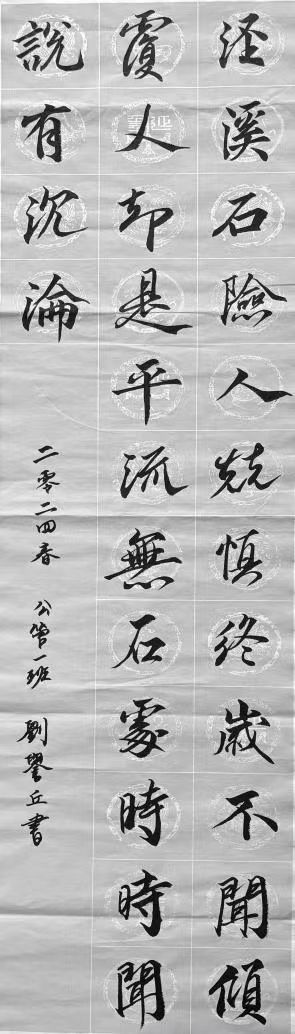 涇溪石險人兢慎終歲不聞傾
覆人却是平流無石處時時聞
說有沉淪
二零二四春 公管一班 劉譽丘書